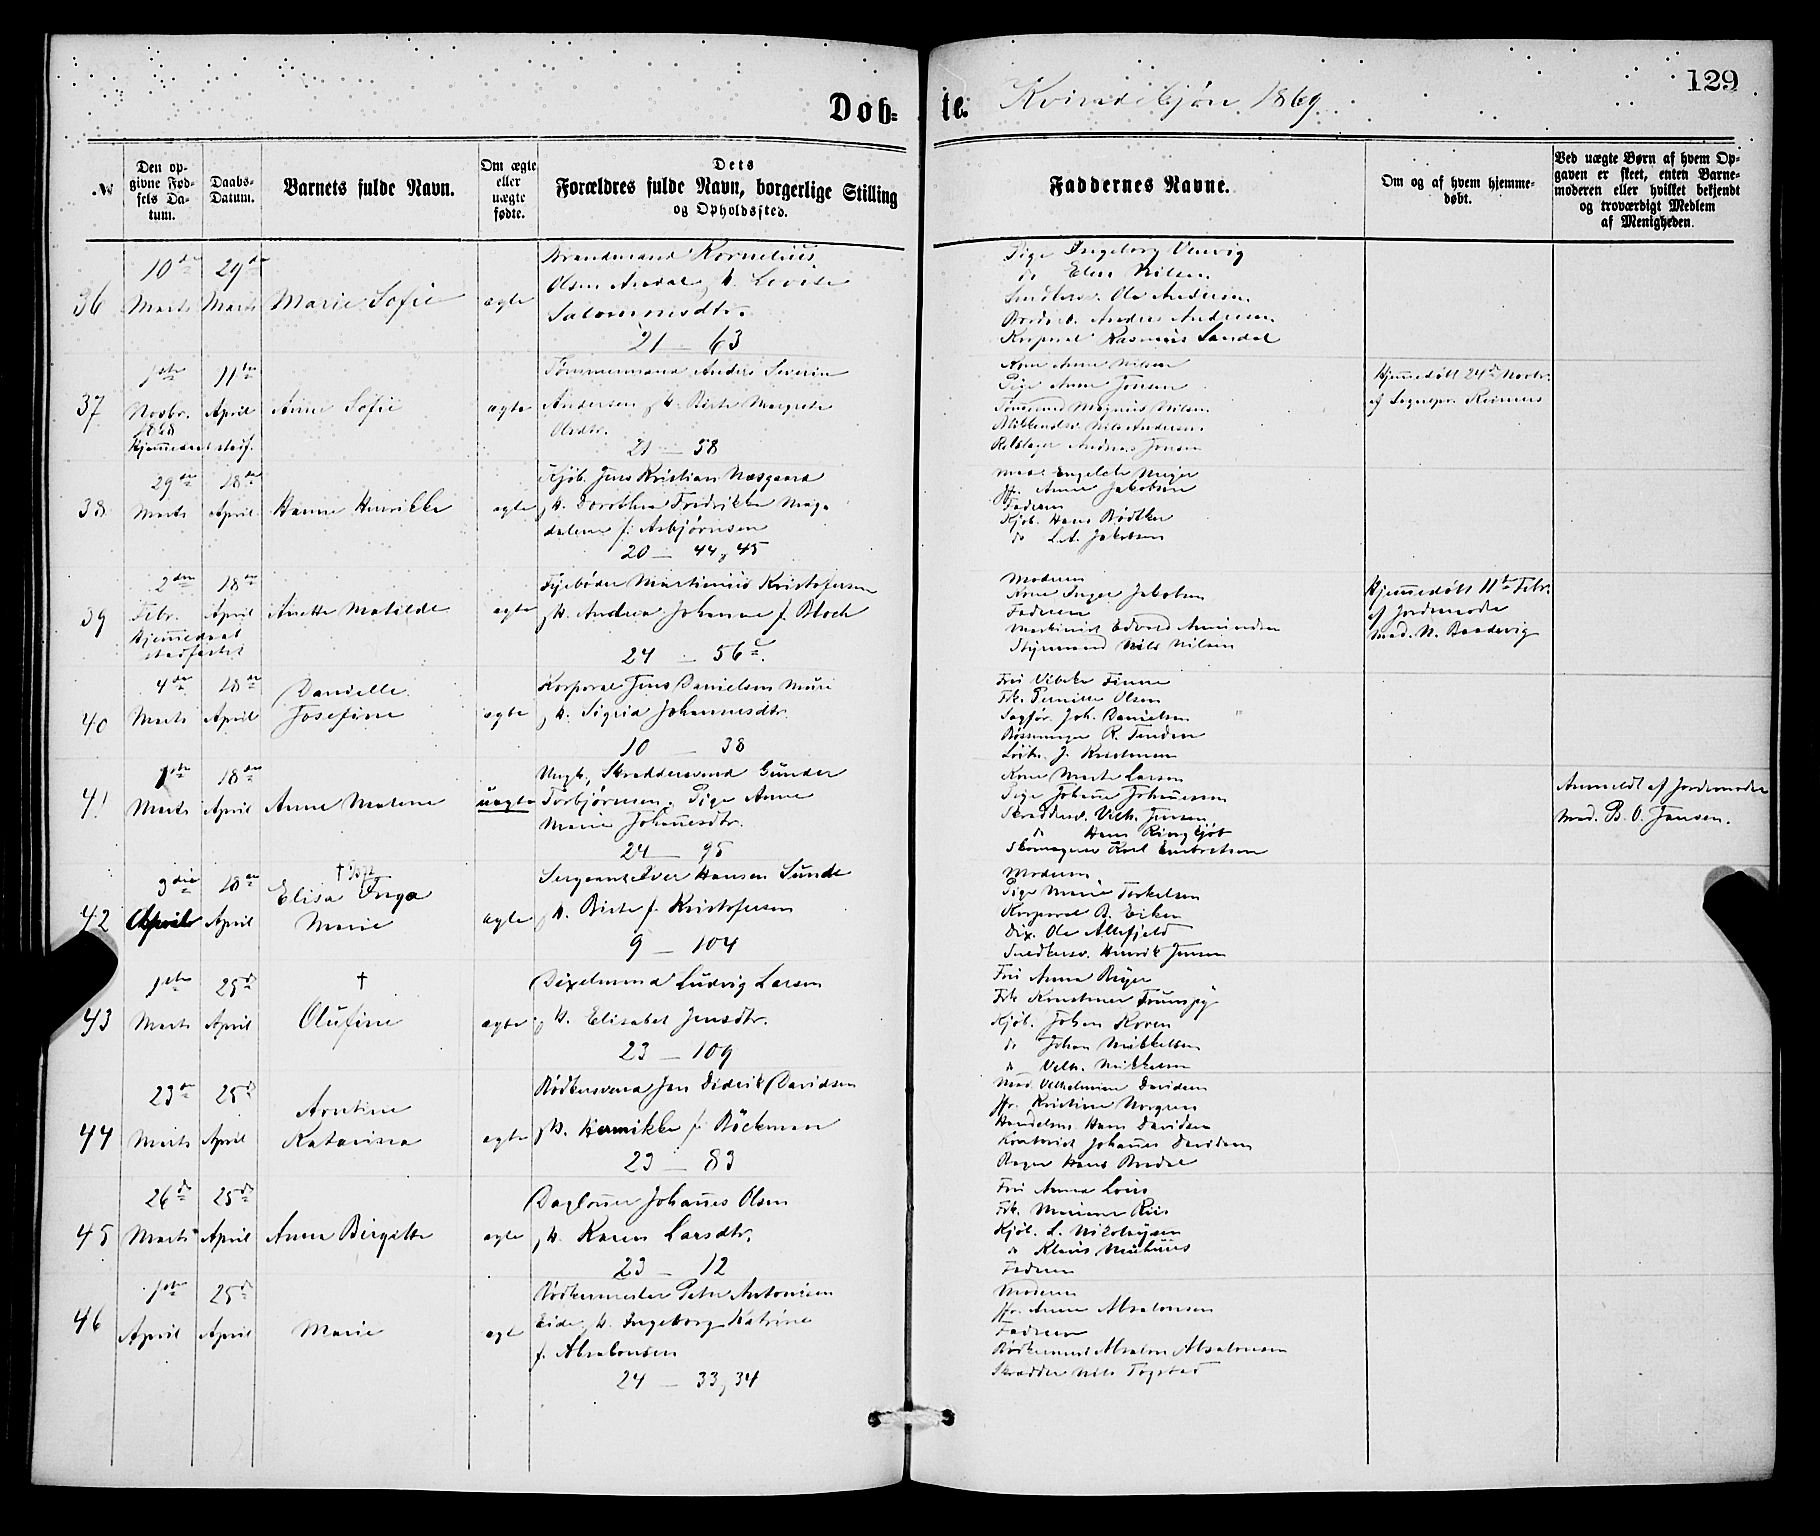 129
Døb-te. Kvindekjøn 1869
№
Den op-
givne Fød-
sels Da-
tum.
Daabs-
Datum.
Barnets fulde Navn.
Om ægte
eller
uægte
fødte.
Dets
Forældres fulde Navn, borgerlige Stilling
og Opholdssted.
Faddernes Navne.
Om og af hvem hjemme-
døbt.
Ved uægte Børn af hvem Op-
gaven er skeet, enten Barne-
moderen eller hvilket bekjendt
og troværdigt Medlem
af Menigheden.
36
10de Marts
29de Marts
Marie Sofie
ægte
Brandmand Kornelius
Olsen Aredal, H. Lovise
Salomonsdtr.
21 — 63
Pige Ingeborg
do Elen Nilsen
Ole Andersen
Anders Andersen
Korporal Rasmus Sandal
37
1ste Novbr. 1868
Hjemmedaab stadf.
11te April
Anne Sofie
ægte
Tømmermand Anders Severin
Andersen, H. Birte Margrete
Olsdtr.
21 — 58
Kone Anne Nilsen
Pige Anne Jonsen
Magnus Nilsen
Nils Andersen
Andreas Jonsen
Hjemmedøbt 24de Novbr.
af Sognepr. Reimers
38
29de Marts
18de April
Hanne Henrikke
ægte
Kjøb. Jens Kristian Næsgaard
H. Dorothea Fredrikke Mag-
dalene f. Asbjørnsen
20 — 44, 45
Mad. Engelche Meyer
Jfr. Anne Jakobsen
Faderen
Kjøb. Hans Bødtker
do L.A. Jakobsen
39
2den Febr.
Hjemmedaab
stadfæstet
18de April
Anette Matilde
ægte
Fyrbøder Martinius Kristofersen
H. Andrea Johanne f. Bloch
24 — 56c.
Moderen
Kone Inger Jakobsen
Faderen
Maskinist Edvard Amundsen
Styrmand Nils Nilsen
Hjemmedøbt 11te Febr.
af Jordemoder
Mad. N. Baadsvig
40
4de Marts
18de April
Danielle
Josefine
ægte
Korporal Jens Danielsen Muri
H. Sigrid Johannesdtr.
10 — 38
Frk. Pernille Olsen
Sagfør. Joh. Danielsen
Bøssemager R.
J. Kristensen
41
1ste Marts
18de April
Anne Malene
uægte
Ungk. Skræddersvend Gunder
Torbjørnsen. Pige Anne
Marie Johannesdtr.
24 — 95
Kone Marte Larsen
Pige Johanne Johannessen
Skræddersv. Vilh. Jensen
do Hans Ringkjøb
Skomager Karl
Anmeldt af Jordemoder
Mad. B. O. Jansen.
42
3die April
18de April
†
Elisa Inga
Marie
ægte
Sergeant Iver Hansen Sunde
H. Birte f. Kristofersen
9 — 104
Moderen
Pige Marie Torkelsen
Korporal B. Eiken
Dix. Ole Altefjeld
Snedkersv. Henrik Jensen
43
1ste Marts
25de April
†
Olufine
ægte
Dixelmand Ludvig Larsen
H. Elisabet Jensdtr.
23 — 109
Fru Anna Beyer
Frk
Kjøb. Johan Koren
do Johan Mikkelsen
do Vilh. Mikkelsen
44
23de Marts
25de April
Arntine
Katarina
ægte
Bødkersvend Jan Diderik Davidsen
H. Henrikke f. Böckman
23 — 83
Mad. Vilhelmine Davidsen
Jfr. Kristine Norgren
Handelsm. Hans Davidsen
Kontorist Johannes Davidsen
Bager Hans Bredal
45
26de Marts
25de April
Anne Birgitte
ægte
Daglønner Johannes Olsen
H. Karen Larsdtr.
23 — 12
Fru Anna
Frk. Mariane
Kjøb. L. Nikolaysen
do Klaus
Faderen
46
1ste April
25de April
Marie
ægte
Bødkermester Peter Antonisen
Eide, H. Ingeborg Katrine
f. Absalonsen
24 — 33, 34
Moderen
Jfr. Anne Absalonsen
Faderen
Absalon Absalonsen
Skrædder Nils Togstad